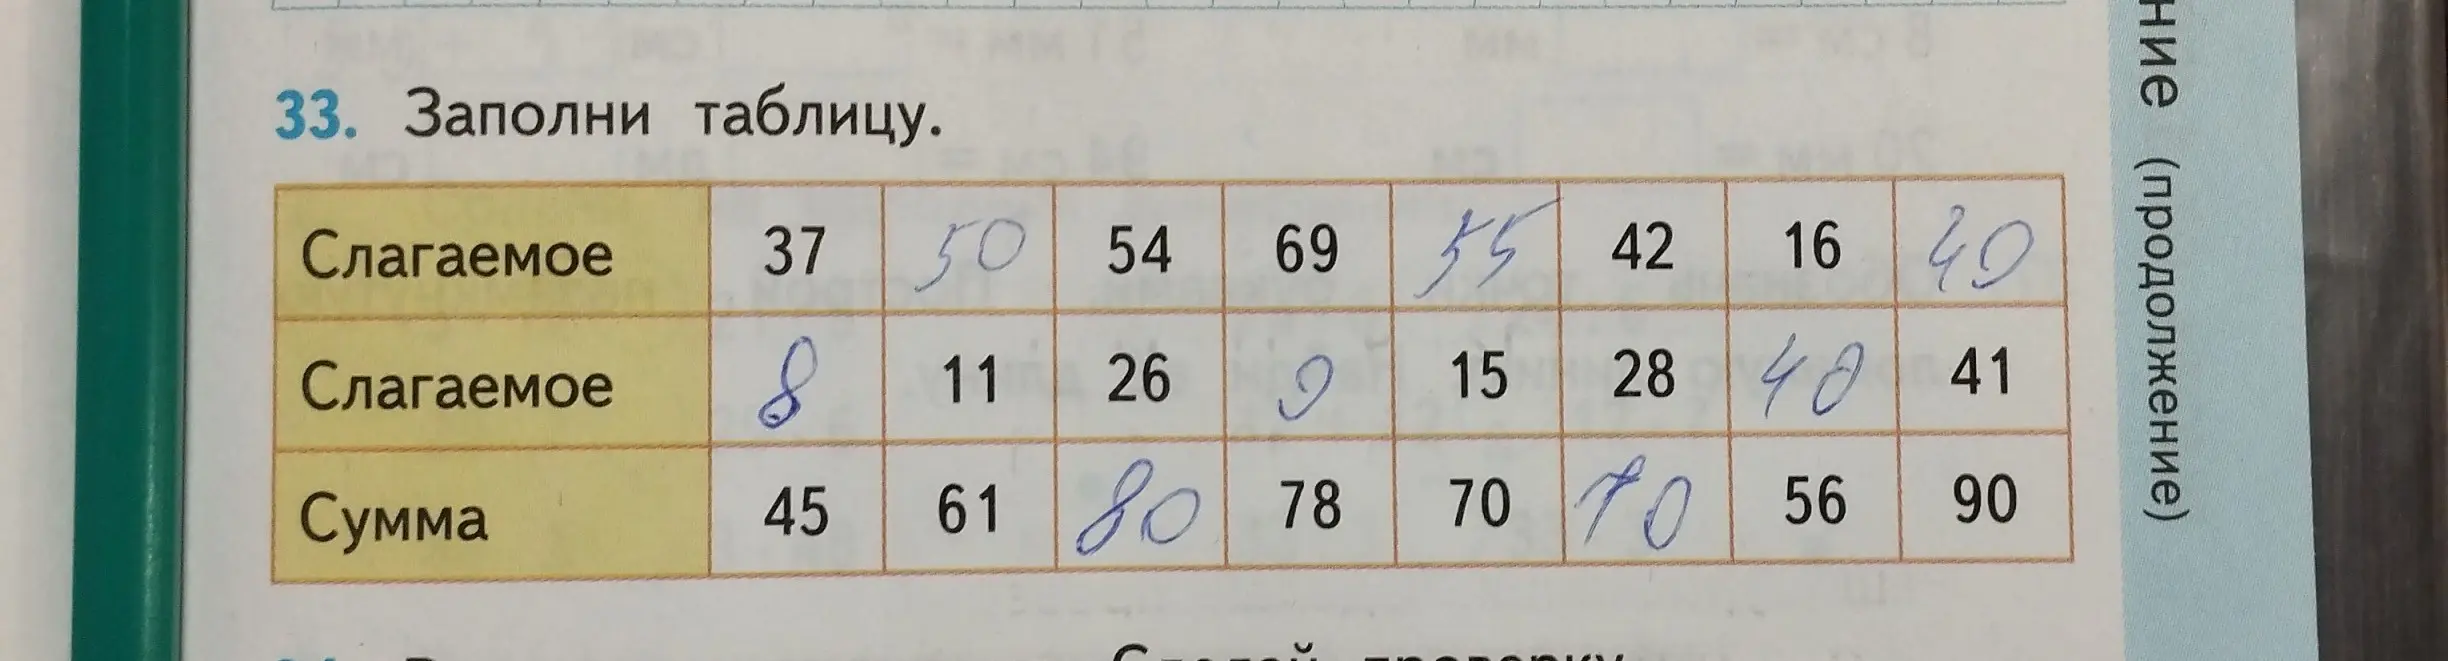 33. Заполни таблицу.
Слагаемое 37 50 54 69 55 42 16 49
Слагаемое 8 11 26 9 15 28 40 41
Сумма 45 61 80 78 70 70 56 90
Сделай проверку
ние (продолжение)